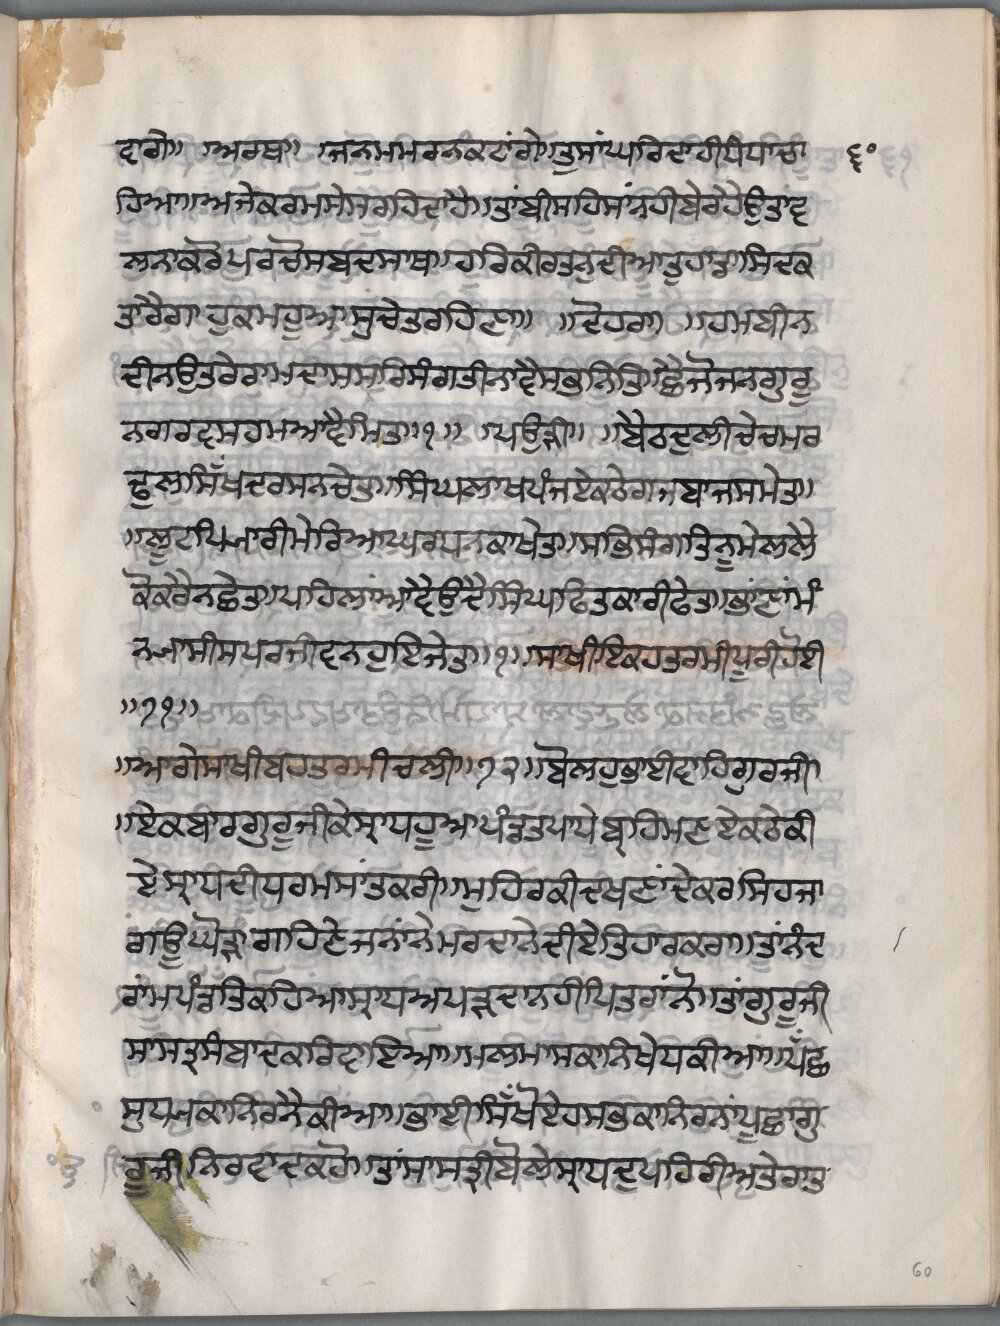 ਵਾਗੇ॥ ॥ਅਰਥ॥ ॥ਜਨਮਮਰਨਕਟਾਂਗੇ॥ਤੁਸਾਂਘਰਿਦਾਹੀਧੈਧਾਚਾ ੬੦
ਹਿਆ॥ਅਜੇਕਰਮਸੇਸਰਹਿਦਾਹੈ॥ਤਾਂਬੀਸਹਿਸਾਂਨਹੀਬੇਰੋਹੈਉਤਾਂਵ
ਲਨਾਕਰੋਪਰਚੋਸਬਦਸਾਥ॥ਹਰਿਕੀਰਤਨੁਦੀਆਤੁਹਾਡਾਸਿਦਕ
ਤਾਰੈਗਾ ਹੁਕਮਹੂਆਸੁਚੇਤਰਹਿਣਾ॥ ॥ਦੋਹਰਾ॥ ॥ਹਮਬੀਨ
ਦੀਨਉਤਰੇਰਾਮਦਾਸਸਰਿਸੰਗਤੀਨਾਵੈਸਭਨਿਤਿ॥ਛੈਜੋਜਨਗੁਰੂ
ਨਗਰਵਸਹਮਆਵੈਮਿਤ॥੧॥ ॥ਪਉੜੀ॥ ॥ਬੈਠਦੁਲੀਚੇਚਮਰ
ਢੁਲ॥ਸਿੱਖਦਰਸਨਚੇਤ॥ਸਿੰਘਲਾਖਪੰਜਏਕਠੇਗਜਬਾਜਸਮੇਤ॥
॥ਲੂਟਪਿਆਰੀਮੇਰਿਆਘਰਧਨਕਾਖੇਤ॥ਸਭਿਸੰਗਤਿਨੂਮੇਲਲੈ
ਕੋਕਰੈਨਛੇਤ॥ਪਹਿਲਾਂਆਵੈਉਦੈਸਿੰਘਹਿਤਕਾਰੀਹੇਤ॥ਭਾਂਣਾਂਮੰ
ਨਆਸੀਸਧਰਜੀਵਨਹੁਇਜੇਤ॥੧॥ਸਾਖੀਇਕਹਤਰਮੀਪੂਰੀਹੋਈ
॥੭੧॥
॥ਆਗੇਸਾਖੀਬਹਤਰਮੀਚਲੀ॥੭੨॥ਬੋਲਹੁਭਾਈਵਾਹਿਗੁਰਜੀ
॥ਏਕਬਾਰਗੁਰੂਜੀਕੇਸ੍ਰਾਧਹੂਆਪੰਡਤਪਾਧੇਬ੍ਰਾਹਿਮਣਏਕਠੇਕੀ
ਏਸ੍ਰਾਧਦੀਧਰਮਸਾਂਤਕਰੀ॥ਮੁਹਿਰਕੀਦਖਣਾਂਦੇਕਰਸਿਹਜਾ
ਗਊਘੋੜਾਗਹਿਣੇਜਨਾਂਨੇਮਰਦਾਨੇਦੀਏਤਿਹਾਰਕਰਾ॥ਤਾਂਨੰਦ
ਰਾਂਮਪੰਡਤਿਕਹਿਆਸ੍ਰਾਧਅਪੜਦਾਨਹੀਪਿਤਰਾਂਨੋ॥ਤਾਂਗੁਰੂਜੀ
ਸਾਸਤ੍ਰਸੰਬਾਦਕਰਿਵਾਇਆ॥ਮਲਮਾਸਕਾਨਿਖੇਧਕੀਆ॥ਪੱਛ
ਸੁਧਅਕਾਨਿਰਨੈਕੀਆ॥ਭਾਈਸਿੱਖੋਏਹਸਭਕਾਨਿਰਨਾਂਪੂਛਾਂਗੁ
ਰੂਜੀਨਿਰਵਾਦਕਹੋ॥ਤਾਂਸਾਸਤ੍ਰੀਬੋਲੇਸ੍ਰਾਧਦੁਪਹਿਰੀਅਤੇਰਾਤ
60